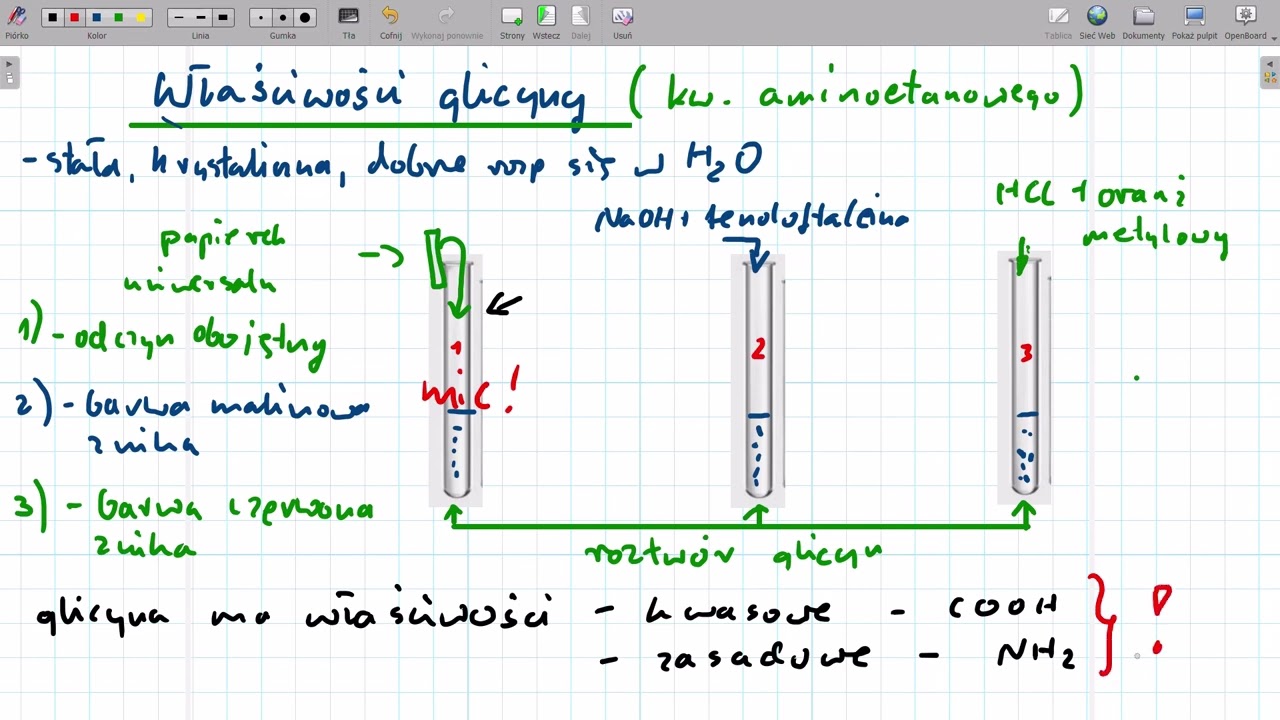 Piórko Kolor Linia Gumka Tła Cofnij Wykonaj ponownie Strony Wstecz Dalej Usuń Tablica Sieć Web Dokumenty Pokaż pulpit OpenBoard
Właściwości glicyny (kw. aminoetanowego)
- stała, krystaliczna, dobrze rozp się w H2O
papierek
uniwersaln
NaOH + fenoloftaleina
HCl + oranż
metylowy
1) - odczyn obojętny
2) - barwa malinowa
znika
3) - barwa czerwona
znika
1
nic!
2
3
roztwór glicyn
glicyna ma właściwości - kwasowe - COOH
- zasadowe - NH2
!